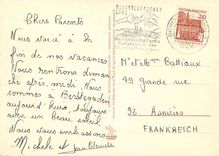 Chers Parents
Nous voici à la
fin de nos vacances
Nous rentrons dimanche
après-midi. Nous
sommes à Berchtesgaden
aujourd'hui,
avec un beau soleil
Nous vous embrassons
Michele et Jean Claude
20
M et Mme Buttiaux
49 Grande rue
Asnières
FRANKREICH